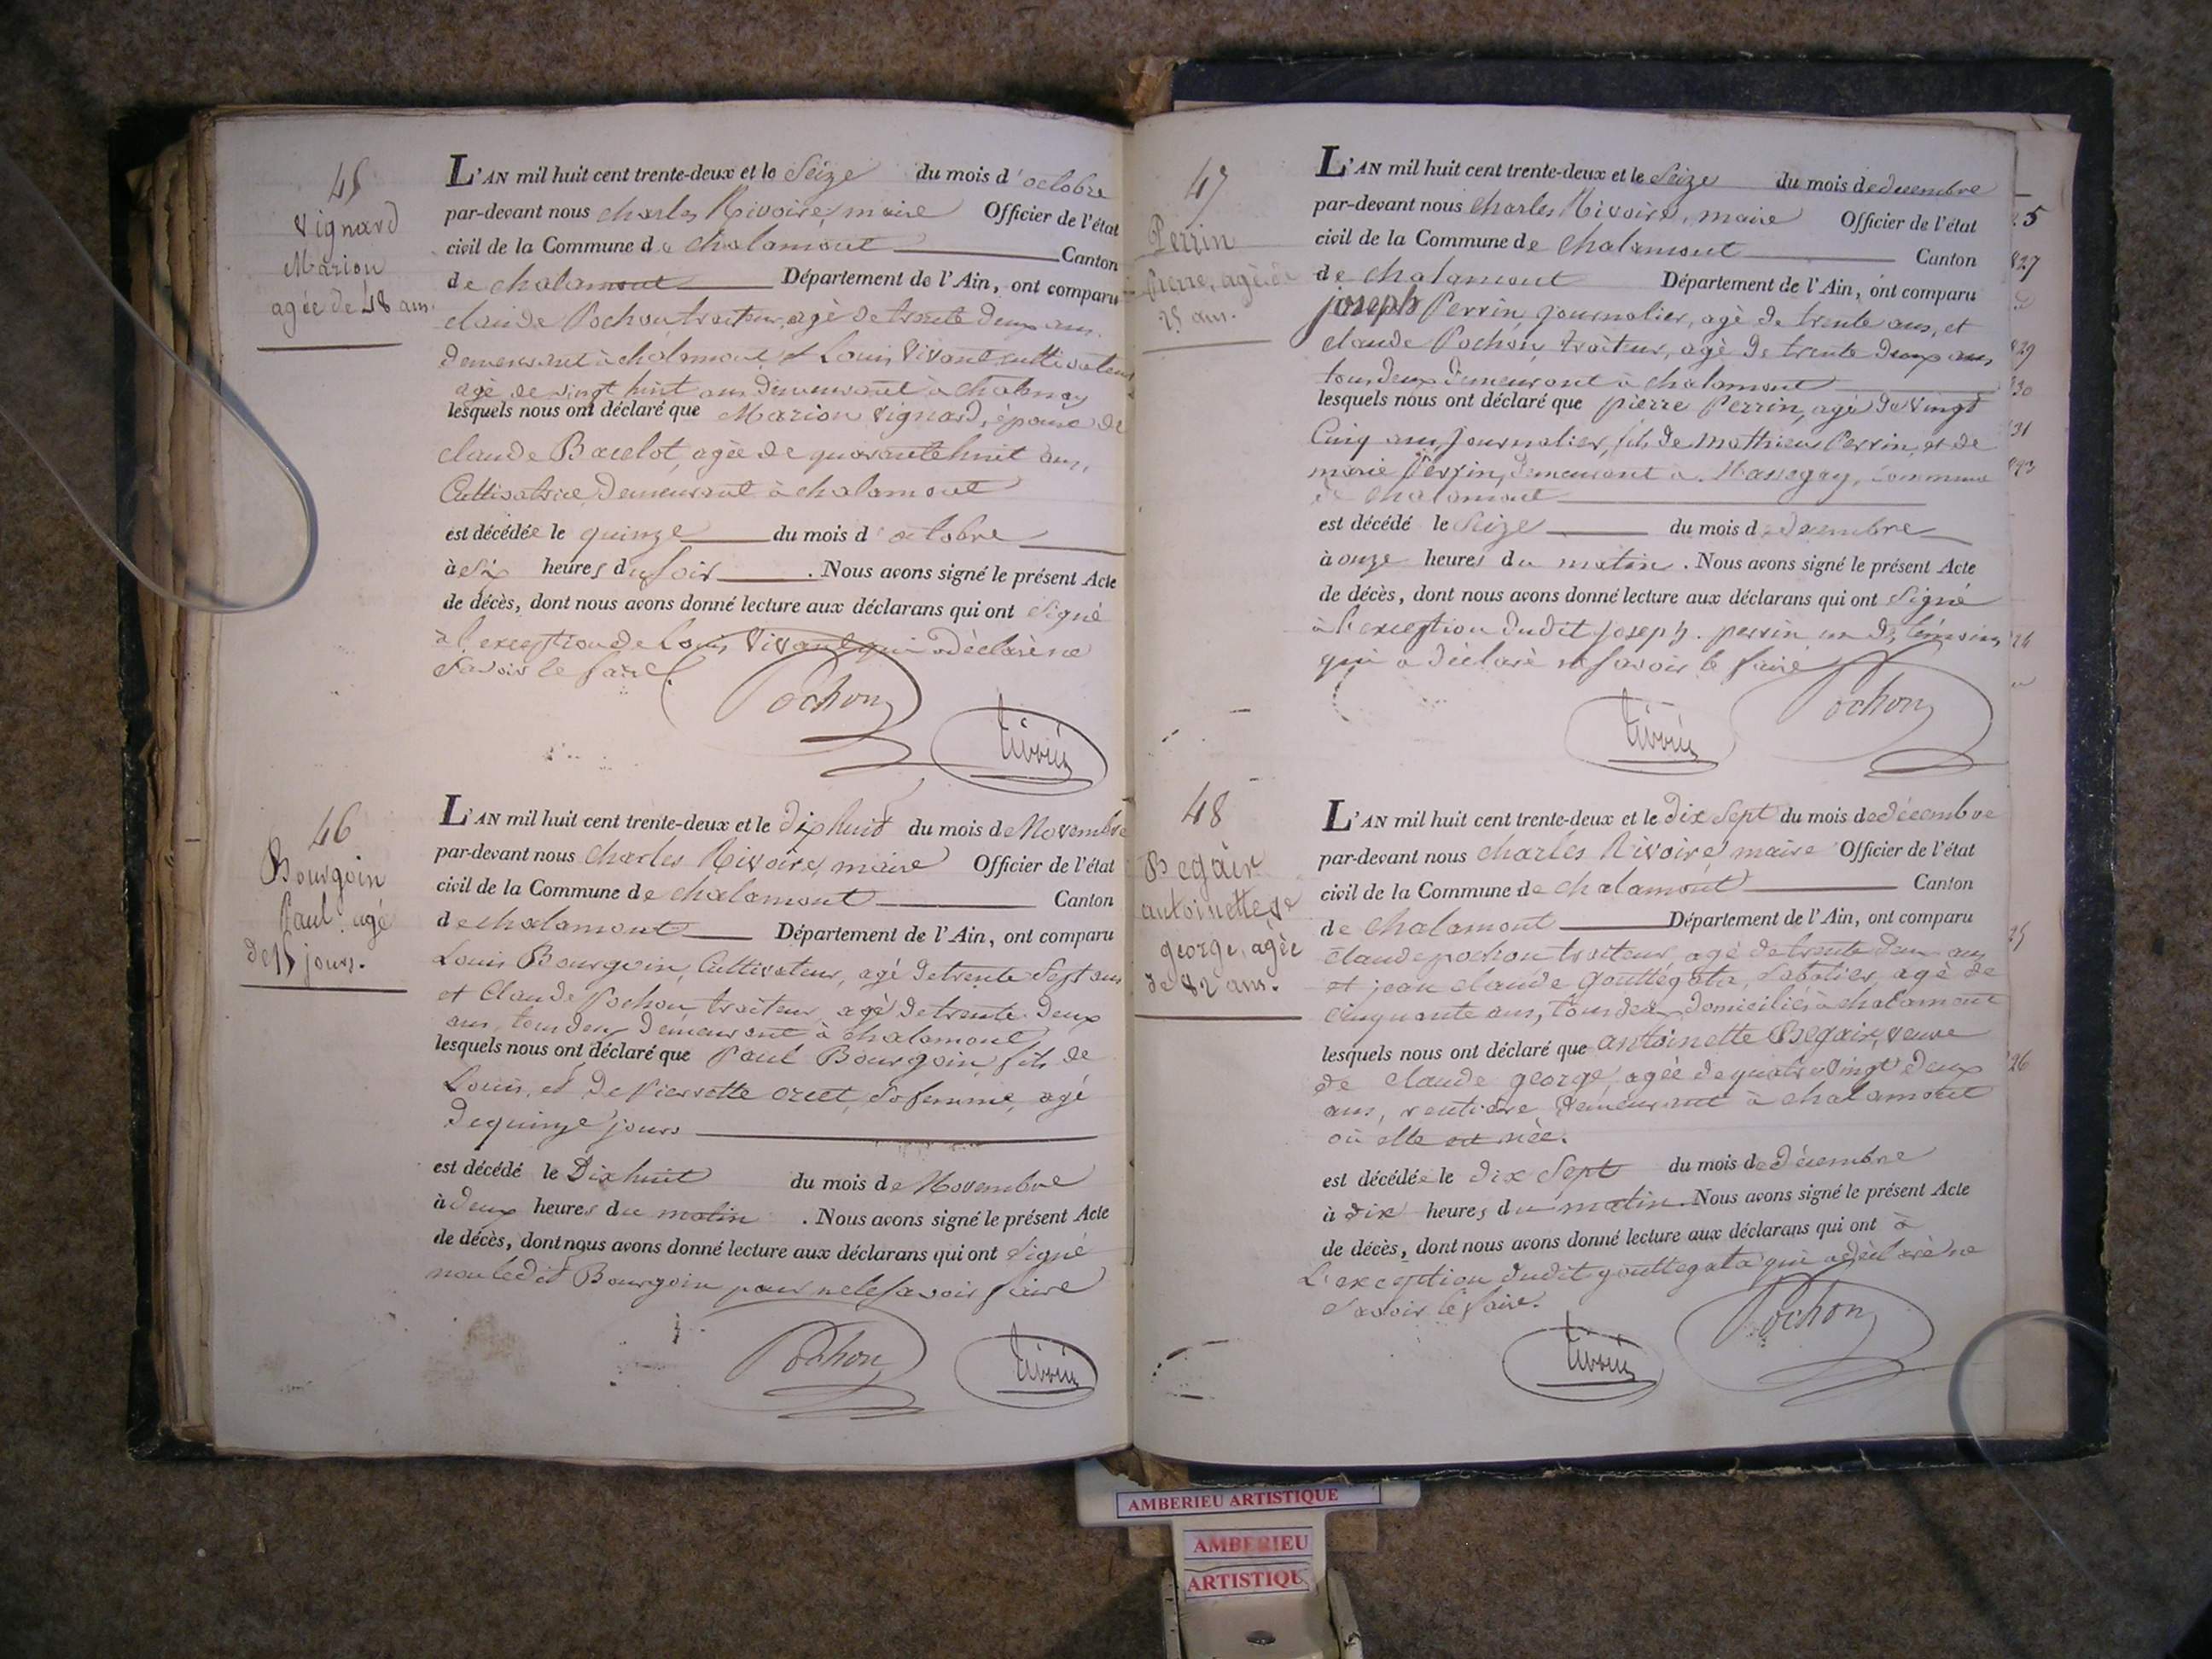 45
Vignard
Marion
agée de 48 ans
L'AN mil huit cent trente-deux et le Seize du mois d'octobre
par-devant nous charles Rivoire, maire Officier de l'état
civil de la Commune de chalamont Canton
de chalamont Département de l'Ain, ont comparu
claude Pochon traiteur, agé de trente deux ans
demeurant à chalamont et Louis Vivant cultivateur
agé de vingt huit ans demeurant à
lesquels nous ont déclaré que Marion Vignard, épouse de
claude Bacelot, agée de quarante huit ans,
Cultivatrice Demeurant à chalamont
est décédée le quinze du mois d'octobre
à Six heures du soir. Nous avons signé le présent Acte
de décès, dont nous avons donné lecture aux déclarans qui ont signé
à l'exception de Louis Vivant qui a déclaré ne
savoir le faire
Pochon
Rivoire
46
Bourgoin
Paul agé
de 15 jours.
L'AN mil huit cent trente-deux et le dix huit du mois de Novembre
par-devant nous charles Rivoire, maire Officier de l'état
civil de la Commune de chalamont Canton
de chalamont Département de l'Ain, ont comparu
Louis Bourgoin, Cultivateur, agé de trente Sept ans
et Claude Pochon, traiteur, agé de trente deux
ans, tous deux demeurant à chalamont
lesquels nous ont déclaré que Paul Bourgoin, fils de
Louis, et de Pierrette Orcet, sa femme, agé
de quinze jours
est décédé le Dix huit du mois de Novembre
à deux heures du matin. Nous avons signé le présent Acte
de décès, dont nous avons donné lecture aux déclarans qui ont signé
non ledit Bourgoin pour ne le savoir faire
Pochon
Rivoire
47
Perrin
Pierre, agé de
25 ans.
L'AN mil huit cent trente-deux et le Seize du mois de decembre
par-devant nous Charles Rivoire, maire Officier de l'état
civil de la Commune de Chalamont Canton
de chalamont Département de l'Ain, ont comparu
joseph Perrin, journalier, agé de trente ans, et
claude Pochon, traiteur, agé de trente deux ans
tous deux demeurant à chalamont
lesquels nous ont déclaré que pierre Perrin, agé de vingt
Cinq ans, Journalier, fils de Mathieu Perrin, et de
marie Perrin, demeurant à Massegay, commune
de chalamont
est décédé le Seize du mois de decembre
à onze heures du matin. Nous avons signé le présent Acte
de décès, dont nous avons donné lecture aux déclarans qui ont Signé
à l'exception dudit joseph. perrin un des témoins
qui a déclaré ne savoir le faire
Rivoire
Pochon
48
Begair
antoinette ve
george, agée
de 82 ans.
L'AN mil huit cent trente-deux et le dix Sept du mois de décembre
par-devant nous charles Rivoire maire Officier de l'état
civil de la Commune de chalamont Canton
de chalamont Département de l'Ain, ont comparu
claude pochon traiteur, agé de trente deux ans
et jean claude gouttegata, Sabotier, agé de
cinquante ans, tous deux domiciliés à chalamont
lesquels nous ont déclaré que antoinette Begair, veuve
de claude george, agée de quatre vingt deux
ans, rentière demeurant à chalamont
où elle est née.
est décédée le dix Sept du mois de décembre
à dix heures du matin. Nous avons signé le présent Acte
de décès, dont nous avons donné lecture aux déclarans qui ont à
L'exception dudit gouttegata qui a déclaré ne
Savoir le faire.
Rivoire
Pochon
AMBERIEU ARTISTIQUE
AMBERIEU
ARTISTIQUE